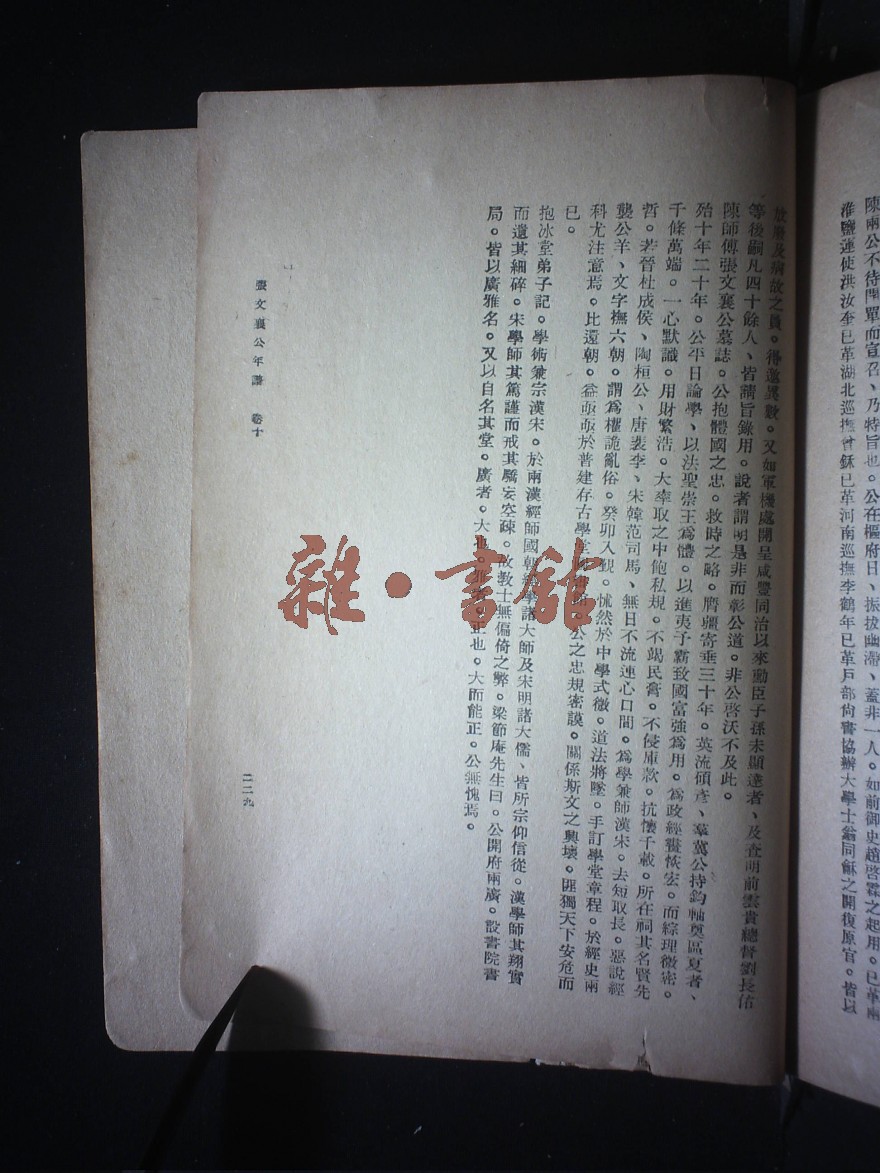 陳兩公不待開單而宣召、乃特旨也。公在樞府日、振拔幽滯、蓋非一人。如前御史趙啓霖之起用。已革兩
淮鹽運使洪汝奎已革湖北巡撫曾鉌已革河南巡撫李鶴年已革戶部尙書協辦大學士翁同龢之開復原官。皆以
故廢及病故之員。得邀異數。又如軍機處開呈咸豐同治以來勳臣子孫未顯達者、及查明前雲貴總督劉長佑
等後嗣凡四十餘人、皆請旨錄用。說者謂明是非而彰公道。非公啓沃不及此。
陳師傅張文襄公墓誌。公抱體國之忠。救時之略。膺疆寄垂三十年。英流碩彥、羣冀公持鈞軸奠區夏者、
殆十年二十年。公平日論學、以法聖崇王爲體。以進夷子霸致國富強爲用。爲政經畫恢宏。而綜理微密。
千條萬端。一心默識。用財繁浩。大率取之中飽私規。不竭民膏。不侵庫款。抗懷千載。所在祠其名賢先
哲。若晉杜成侯、陶桓公、唐裴李、宋韓范司馬、無日不流連心口間。爲學兼師漢宋。去短取長。惡說經
襲公羊、文字撫六朝。謂爲權詭亂俗。癸卯入覲。慨然於中學式微。道法將墜。手訂學堂章程。於經史兩
科尤注意焉。比還朝。益亟亟於普建存古學堂圖書館。公之忠規密謨。關係斯文之興壞。匪獨天下安危而
已。
抱冰堂弟子記。學術兼宗漢宋。於兩漢經師國朝經學諸大師及宋明諸大儒、皆所宗仰信從。漢學師其翔實
而遺其細碎。宋學師其篤謹而戒其驕妄空疎。故教士無偏倚之弊。梁節庵先生曰。公開府兩廣。設書院書
局。皆以廣雅名。又以自名其堂。廣者。大也。雅者。正也。大而能正。公無愧焉。
張文襄公年譜 卷十
二二九
雜·書館